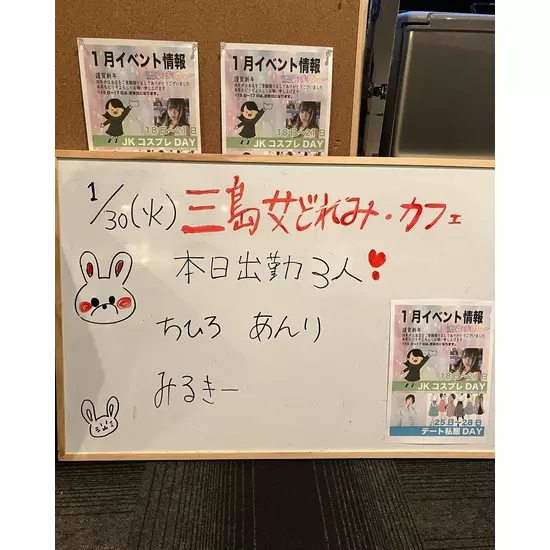 1月イベント情報
謹賀新年
18日~21日
JKコスプレDAY
1月イベント情報
謹賀新年
18日~21日
JKコスプレDAY
1/30(火)三島女どれみ・カフェ
本日出勤3人
ちひろ あんり
みるきー
1月イベント情報
謹賀新年
18日~21日
JKコスプレDAY
25日~28日
デート私服DAY